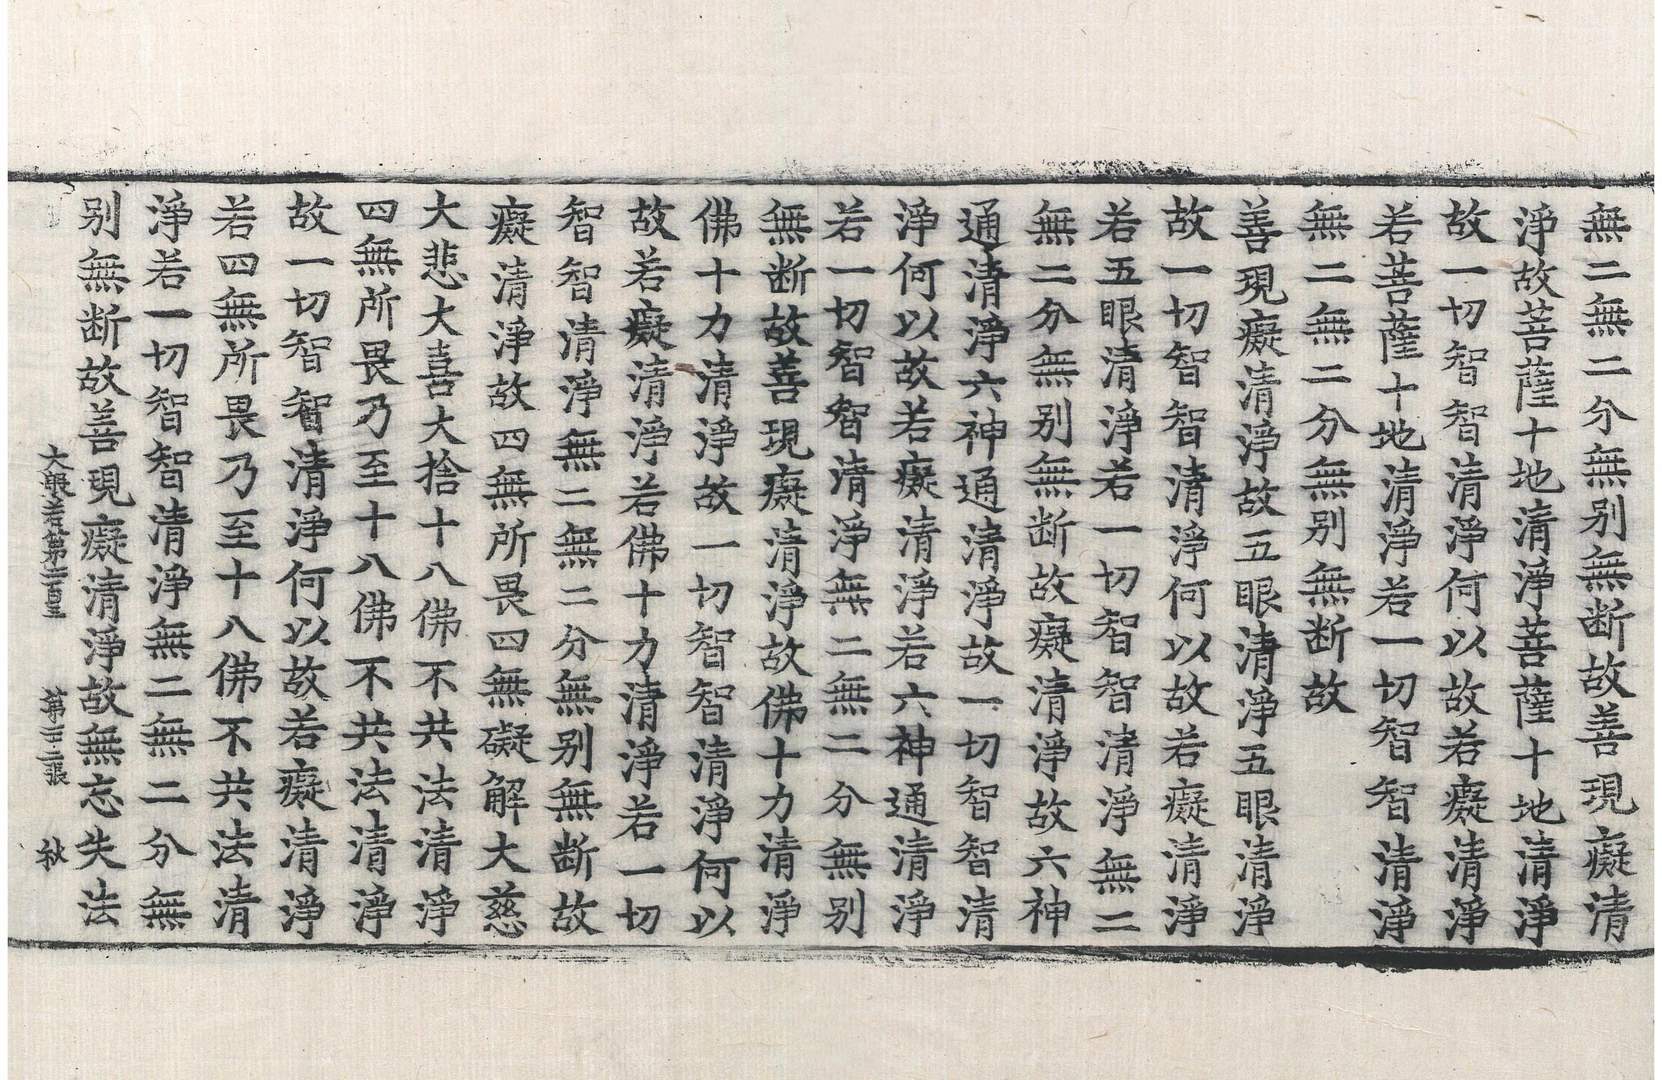 無二無二分無别無断故善現癡清
淨故菩薩十地清淨菩薩十地清淨
故一切智智清淨何以故若癡清淨
若菩薩十地清淨若一切智智清淨
無二無二分無别無断故
善現癡清淨故五眼清淨五眼清淨
故一切智智清淨何以故若癡清淨
若五眼清淨若一切智智清淨無二
無二分無别無断故癡清淨故六神
通清淨六神通清淨故一切智智清
淨何以故若癡清淨若六神通清淨
若一切智智清淨無二無二分無别
無断故善現癡清淨故佛十力清淨
佛十力清淨故一切智智清淨何以
故若癡清淨若佛十力清淨若一切
智智清淨無二無二分無别無断故
癡清淨故四無所畏四無礙解大慈
大悲大喜大捨十八佛不共法清淨
四無所畏乃至十八佛不共法清淨
故一切智智清淨何以故若癡清淨
若四無所畏乃至十八佛不共法清
淨若一切智智清淨無二無二分無
别無断故善現癡清淨故無忘失法
大般若第二百 張 秋